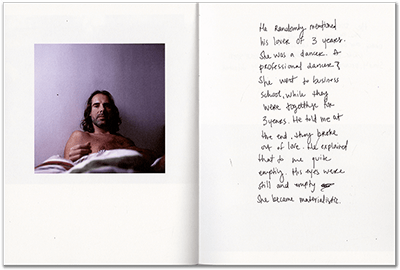 He randomly mentioned
his lover of 3 years.
She was a dancer. A
professional dancer?
She went to business
school, while they
were together for
3 years. He told me at
the end, they broke
out of love. He explained
that to me quite
emptily. His eyes were
still and empty
She became materialistic.